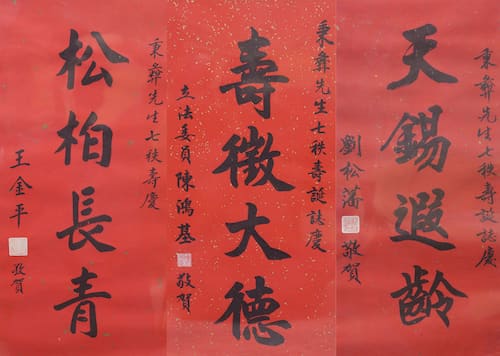 秉彝先生七秩壽誕誌慶
天錫遐齡
劉松藩 敬賀
秉彝先生七秩壽誕誌慶
壽徵大德
立法委員陳鴻基 敬賀
秉彝先生七秩壽慶
松柏長青
王金平 敬賀